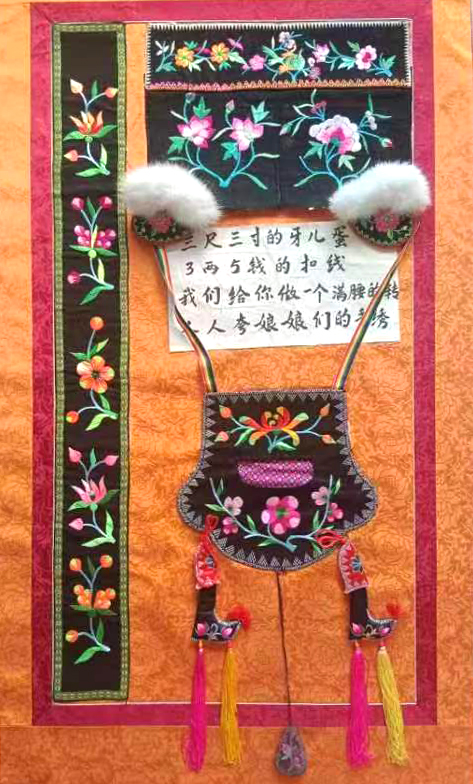 三尺三寸的牙儿蛋
3两5钱的扣线
我们给你做一个满腰的转
人夸娘娘们的手绣